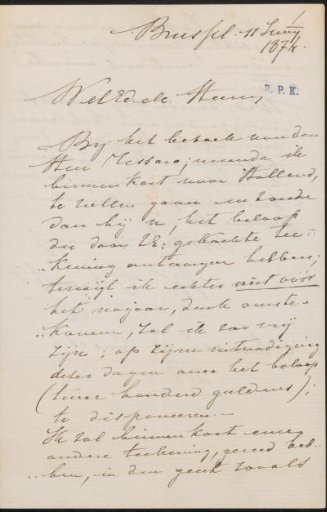 Brussel. 11 Junij
1874.
R.P.K.
WelEdele Heer,
By het bezoek van den
Heer Tessaro; meende ik
binnen kort naar Holland,
te zullen gaan en zoude
dan bij u, het beloop
der door UE: gekochte tee-
kening ontvangen hebben;
terwijl ik echter niet vóór
het najaar, denk over te
komen, zal ik zoo vrij
zijn; op zijne uitnoodiging
dezer dagen over het beloop
(twee honderd guldens);
te disponeren.—
Ik zal binnen kort eene
andere teekening, gereed heb-
ben, in den geest zooals